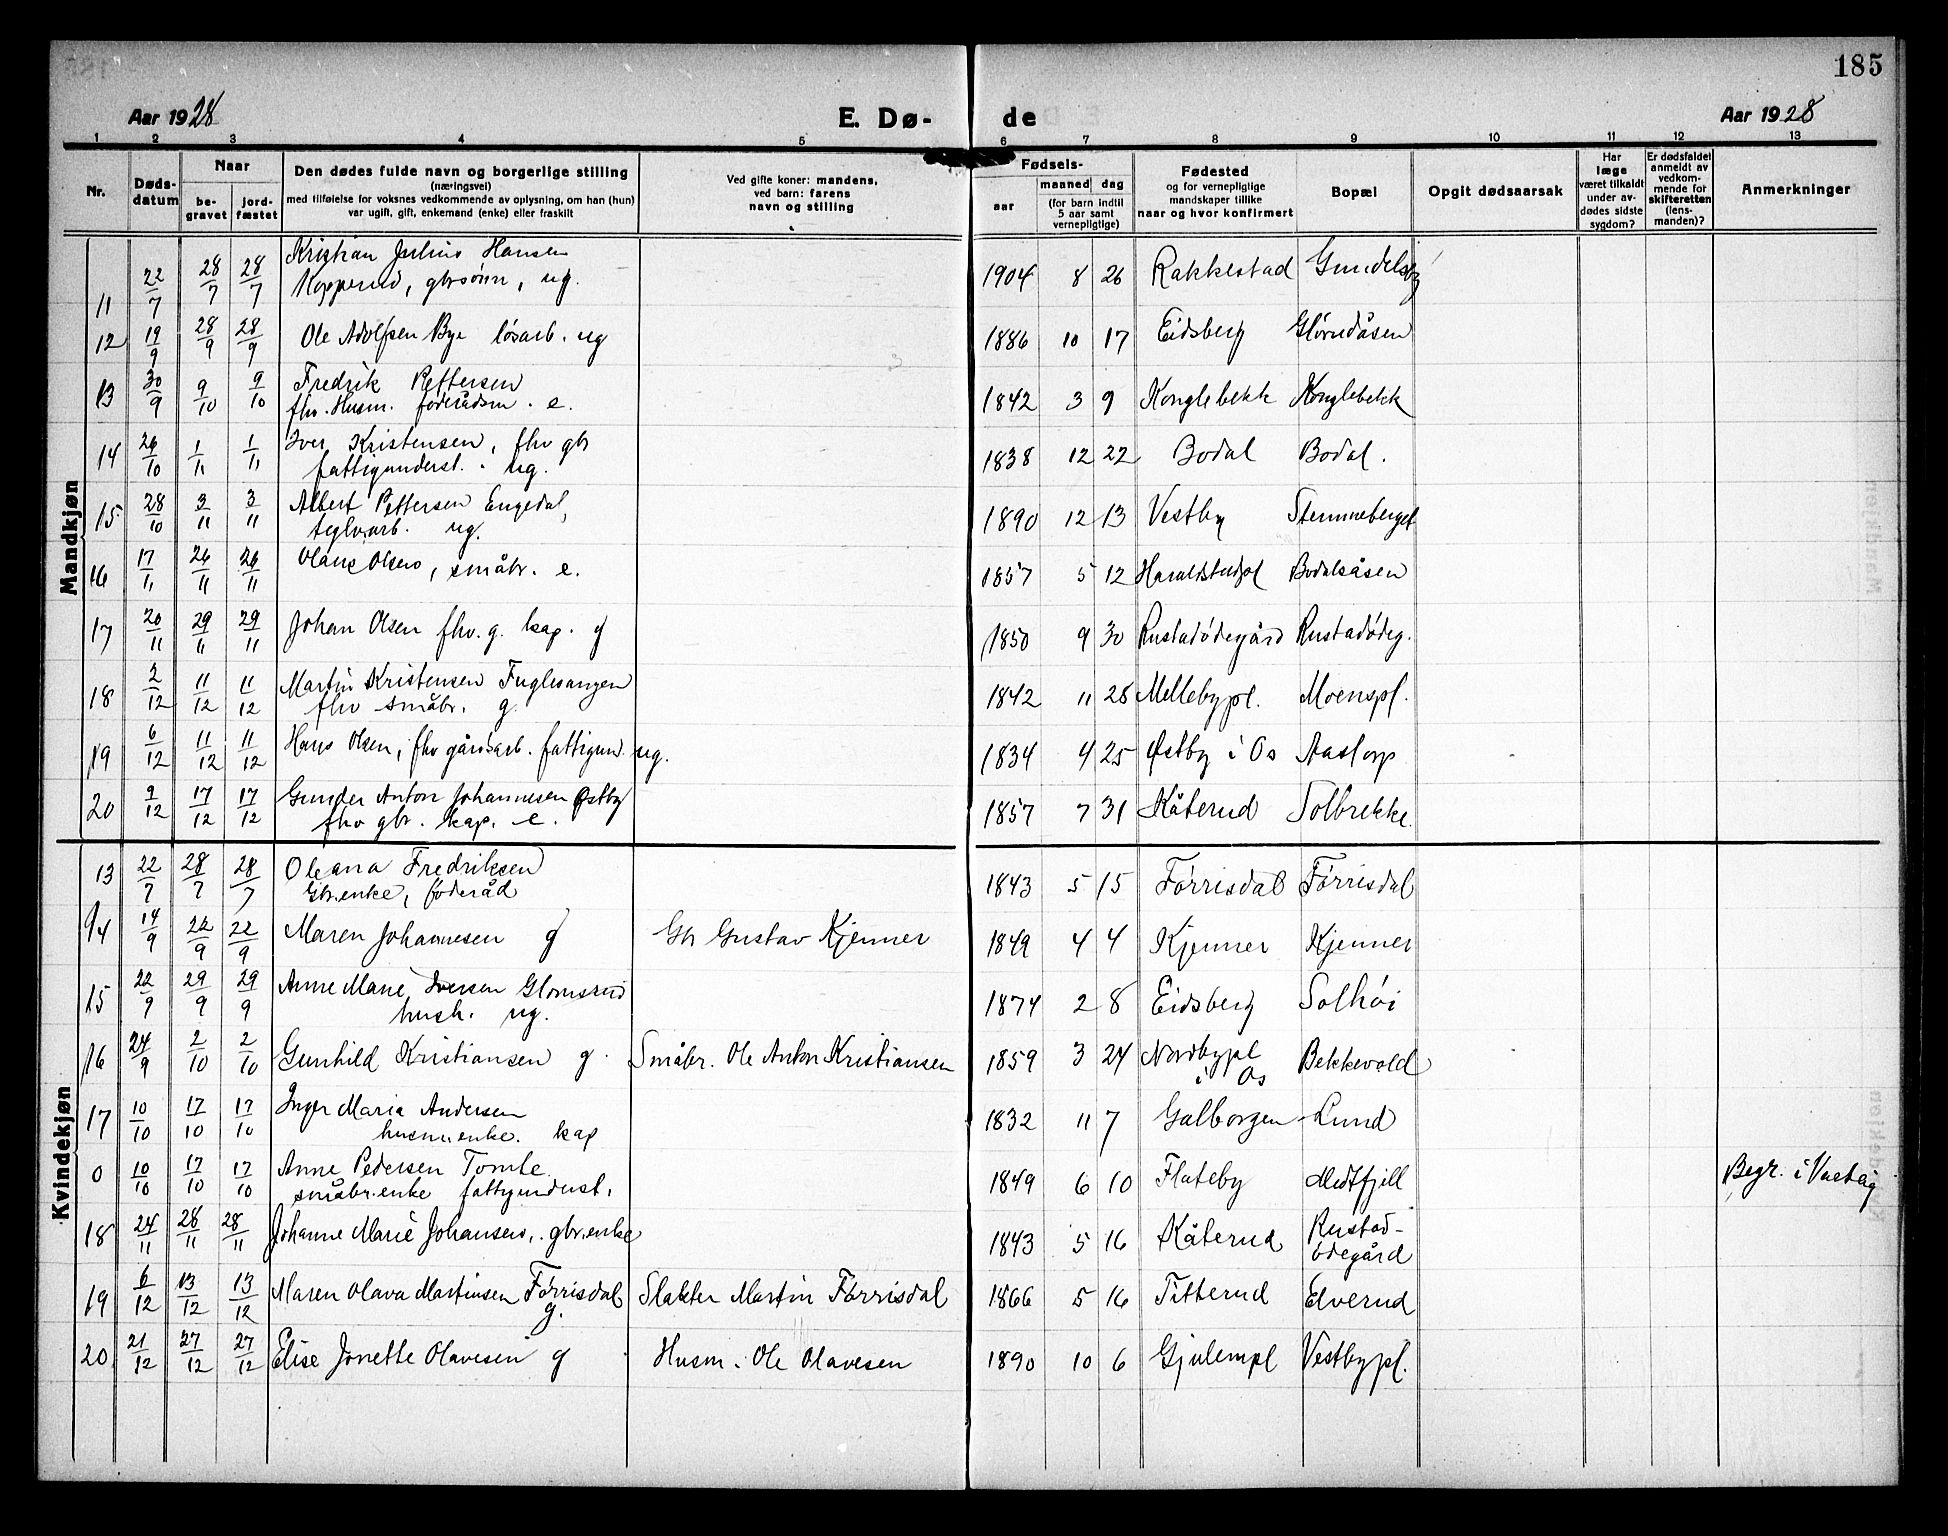 185
Aar 1928 E. Dø- de Aar 1928
1 2 3 4 5 6 7 8 9 10 11 12 13
Nr. Døds-datum Naar begravet jordfæstet Den dødes fulde navn og borgerlige stilling (næringsvei) med tilføielse for voksnes vedkommende av oplysning, om han (hun) var ugift, gift, enkemand (enke) eller fraskilt Ved gifte koner: mandens, ved barn: farens navn og stilling Fødsels- aar maaned dag (for barn indtil 5 aar samt vernepligtige) Fødested og for vernepligtige mandskaper tillike naar og hvor konfirmert Bopæl Opgit dødsaarsak Har læge været tilkaldt under avdødes sidste sygdom? Er dødsfaldet anmeldt av vedkommende for skifteretten (lensmanden)? Anmerkninger
Mandkjøn
11 22/7 28/7 28/7 Kristian Julius Hansen Kopperud, gbrsønn, ug. 1904 8 26 Rakkestad Gundelsby
12 19/9 28/9 28/9 Ole Adolfsen Bye løsarb. ug 1886 10 17 Eidsberg Glørudåsen
13 30/9 9/10 9/10 Fredrik Pettersen fhv. Husm. føderådsm. e. 1842 3 9 Konglebekk Konglebekk
14 26/10 1/11 1/11 Iver Kristensen, fhv gbr fattigunderst. ug. 1838 12 22 Bodal Bodal.
15 28/10 3/11 3/11 Albert Pettersen Engedal, teglv.arb. ug. 1890 12 13 Vestby Stemneberget
16 17/11 26/11 26/11 Olaus Olsen, småbr. e. 1857 5 12 Haraldstadpl Bodalsåsen
17 20/11 29/11 29/11 Johan Olsen fhv. g. kap. g 1850 9 30 Rustadødegård Rustadødeg.
18 2/12 11/12 11/12 Martin Kristensen Fuglesangen fhv småbr. g. 1842 11 28 Mellebypl. Moenspl.
19 6/12 11/12 11/12 Hans Olsen, fhv gårdsarb. fattigund. ug. 1834 4 25 Østby i Os Aastorp
20 9/12 17/12 17/12 Gunder Anton Johannesen Østby fhv gbr. kap. e. 1857 7 31 Kåterud Solbrekke.
Kvindekjøn
13 22/7 28/7 28/7 Oleana Fredriksen Gbr.enke, føderåd 1843 5 15 Førrisdal Førrisdal
14 14/9 22/9 22/9 Maren Johannesen g Gbr Gustav Kjenner 1849 4 4 Kjenner Kjenner
15 22/9 29/9 29/9 Anne Marie Iversen Glomsrud hush. ug. 1874 2 8 Eidsberg Solhøi
16 24/9 2/10 2/10 Gunhild Kristiansen g. Småbr. Ole Anton Kristiansen 1859 3 24 Nordbypl i Os Bekkevold
17 10/10 17/10 17/10 Inger Maria Andersen husm.enke. kap 1832 11 7 Galborgen Lund
0 10/10 17/10 17/10 Anne Pedersen Tomte småbr.enke fattigunderst. 1849 6 10 Flateby Medtfjell Begr. i Vastvig
18 24/11 28/11 28/11 Johanne Marie Johansen, gbr.enke 1843 5 16 Kåterud Rustad-ødegård
19 6/12 13/12 13/12 Maren Olava Martinsen Førrisdal g. Slakter Martin Førrisdal 1866 5 16 Titterud Elverud
20 21/12 27/12 27/12 Elise Jonette Olavesen g Husm. Ole Olavesen 1890 10 6 Gjulempl Vestbypl.